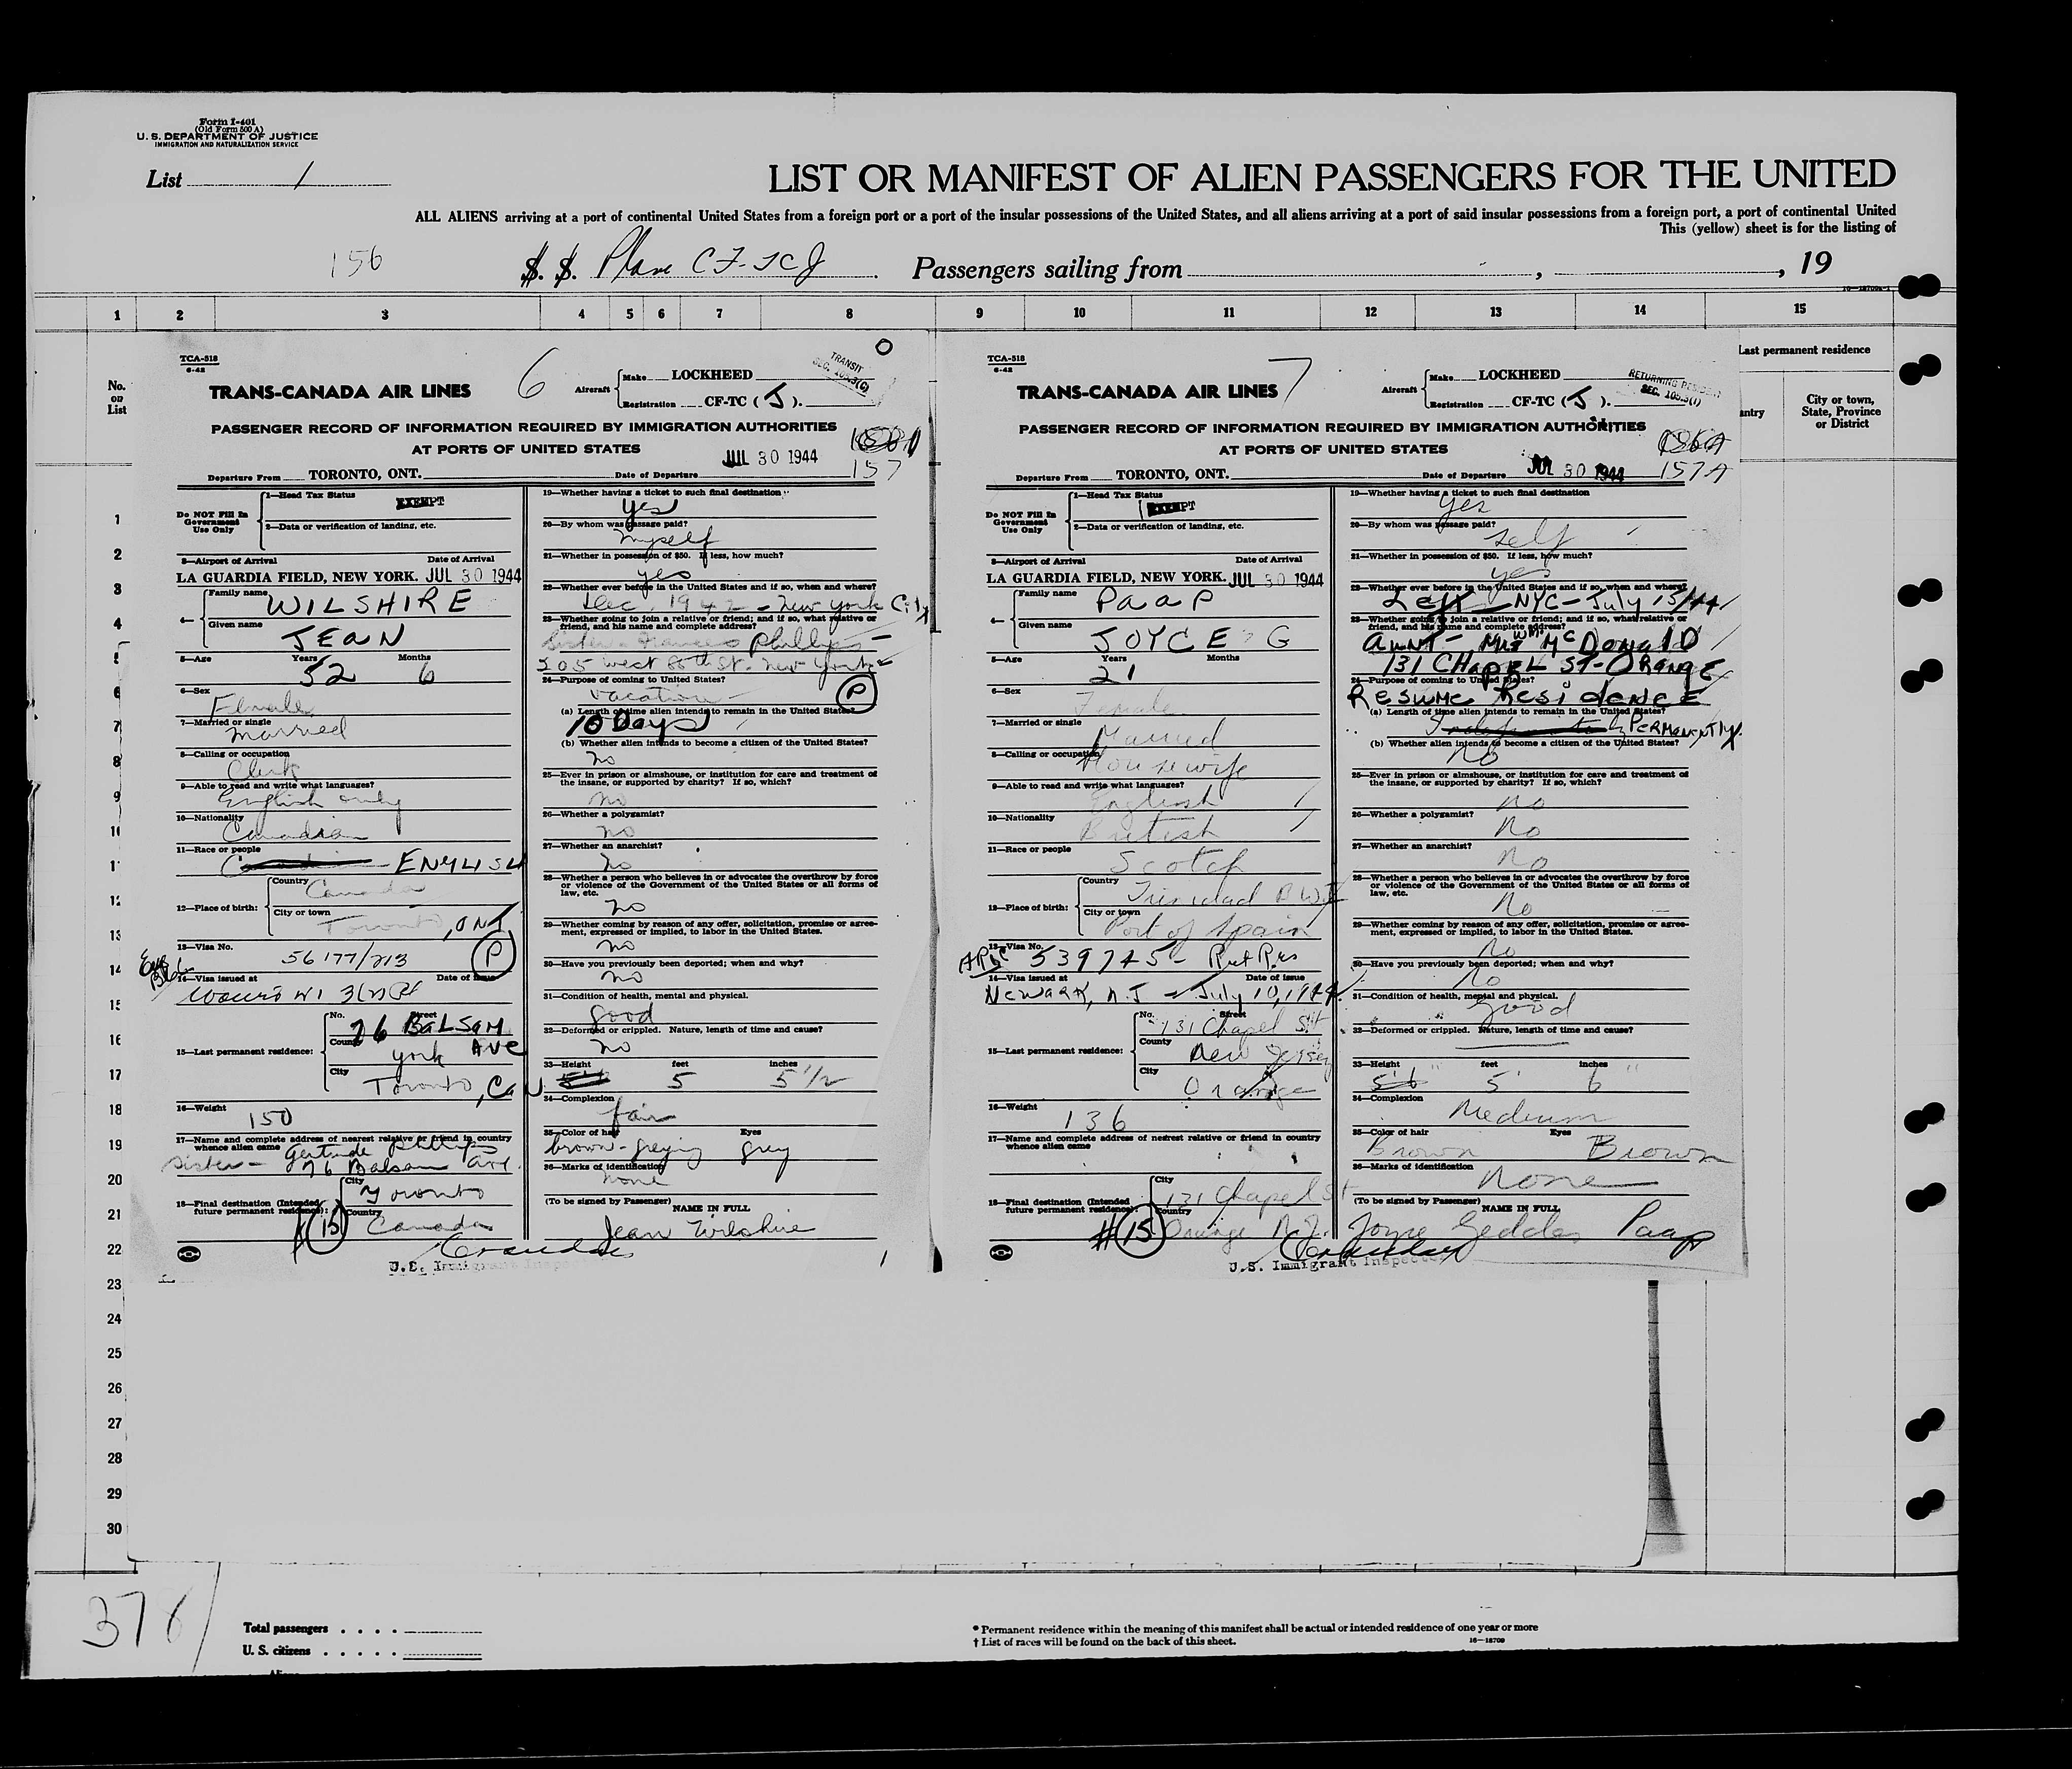 Form I-401
(Old Form 500 A)
U. S. DEPARTMENT OF JUSTICE
IMMIGRATION AND NATURALIZATION SERVICE
List 1
LIST OR MANIFEST OF ALIEN PASSENGERS FOR THE UNITED
ALL ALIENS arriving at a port of continental United States from a foreign port or a port of the insular possessions of the United States, and all aliens arriving at a port of said insular possessions from a foreign port, a port of continental United
This (yellow) sheet is for the listing of
156 S. S. Plane CF-TCJ Passengers sailing from , , 19
1 2 3 4 5 6 7 8 9 10 11 12 13 14 15
No. on List
Last permanent residence
City or town, State, Province or District
TCA-518
6-42
6
TRANS-CANADA AIR LINES
Aircraft Make LOCKHEED
Registration CF-TC ( J ).
TRANSIT
SEC. 105.3(C)
PASSENGER RECORD OF INFORMATION REQUIRED BY IMMIGRATION AUTHORITIES
AT PORTS OF UNITED STATES
JUL 30 1944
157
Departure From TORONTO, ONT. Date of Departure
Do NOT Fill in Government Use Only
1—Head Tax Status EXEMPT
2—Data or verification of landing, etc.
3—Airport of Arrival Date of Arrival
LA GUARDIA FIELD, NEW YORK. JUL 30 1944
4— Family name WILSHIRE
Given name JEAN
5—Age Years 52 Months 6
6—Sex Female
7—Married or single Married
8—Calling or occupation Clerk
9—Able to read and write what languages? English only
10—Nationality Canadian
11—Race or people ENGLISH
12—Place of birth: Country Canada
City or town Toronto, ONT.
13—Visa No. 56177/213 P
14—Visa issued at Date of issue
15—Last permanent residence: No. Street 76 BALSAM AVE
County York
City Toronto, Can.
16—Weight 150
17—Name and complete address of nearest relative or friend in country whence alien came
sister — Gertrude Phillips
76 Balsam Ave.
18—Final destination (Intended future permanent residence): City Toronto
Country Canada
#15
U.S. Immigrant Inspector
19—Whether having a ticket to such final destination
Yes
20—By whom was passage paid?
Myself
21—Whether in possession of $50. If less, how much?
yes
22—Whether ever before in the United States and if so, when and where?
Dec. 1942 - New York City
23—Whether going to join a relative or friend; and if so, what relative or friend, and his name and complete address?
Sister - Frances Phillips
205 west 88th St. New York
24—Purpose of coming to United States?
vacation P
(a) Length of time alien intends to remain in the United States?
10 Days
(b) Whether alien intends to become a citizen of the United States?
no
25—Ever in prison or almshouse, or institution for care and treatment of the insane, or supported by charity? If so, which?
no
26—Whether a polygamist?
no
27—Whether an anarchist?
no
28—Whether a person who believes in or advocates the overthrow by force or violence of the Government of the United States or all forms of law, etc.
no
29—Whether coming by reason of any offer, solicitation, promise or agreement, expressed or implied, to labor in the United States.
no
30—Have you previously been deported; when and why?
no
31—Condition of health, mental and physical.
good
32—Deformed or crippled. Nature, length of time and cause?
no
33—Height feet 5 inches 5 1/2
34—Complexion
fair
35—Color of hair brown - greying Eyes grey
36—Marks of identification
none
(To be signed by Passenger)
NAME IN FULL
Jean Wilshire
TCA-518
6-42
7
TRANS-CANADA AIR LINES
Aircraft Make LOCKHEED
Registration CF-TC ( J ).
RETURNING RESIDENT
SEC. 105.3(1)
PASSENGER RECORD OF INFORMATION REQUIRED BY IMMIGRATION AUTHORITIES
AT PORTS OF UNITED STATES
JUL 30 1944
157A
Departure From TORONTO, ONT. Date of Departure
Do NOT Fill in Government Use Only
1—Head Tax Status EXEMPT
2—Data or verification of landing, etc.
3—Airport of Arrival Date of Arrival
LA GUARDIA FIELD, NEW YORK. JUL 30 1944
4— Family name PAAP
Given name JOYCE G
5—Age Years 21 Months
6—Sex Female
7—Married or single Married
8—Calling or occupation Housewife
9—Able to read and write what languages? English
10—Nationality British
11—Race or people Scotch
12—Place of birth: Country Trinidad B.W.I.
City or town Port of Spain
13—Visa No. 539745 - Ret Res
14—Visa issued at Date of issue
Newark, N.J - July 10, 1944
15—Last permanent residence: No. Street 131 Chapel St
County New Jersey
City Orange
16—Weight 136
17—Name and complete address of nearest relative or friend in country whence alien came
18—Final destination (Intended future permanent residence): City 131 Chapel St
Country Orange N.J.
#15
U.S. Immigrant Inspector
19—Whether having a ticket to such final destination
Yes
20—By whom was passage paid?
Self
21—Whether in possession of $50. If less, how much?
yes
22—Whether ever before in the United States and if so, when and where?
Left - NYC - July 15/44
23—Whether going to join a relative or friend; and if so, what relative or friend, and his name and complete address?
AUNT - Mrs Wm McDonald
131 CHAPEL ST - ORANGE
24—Purpose of coming to United States?
RESUME RESIDENCE
(a) Length of time alien intends to remain in the United States?
PERMANENTLY
(b) Whether alien intends to become a citizen of the United States?
No
25—Ever in prison or almshouse, or institution for care and treatment of the insane, or supported by charity? If so, which?
no
26—Whether a polygamist?
No
27—Whether an anarchist?
No
28—Whether a person who believes in or advocates the overthrow by force or violence of the Government of the United States or all forms of law, etc.
No
29—Whether coming by reason of any offer, solicitation, promise or agreement, expressed or implied, to labor in the United States.
No
30—Have you previously been deported; when and why?
No
31—Condition of health, mental and physical.
Good
32—Deformed or crippled. Nature, length of time and cause?
33—Height feet 5' inches 6"
34—Complexion
Medium
35—Color of hair Brown Eyes Brown
36—Marks of identification
None
(To be signed by Passenger)
NAME IN FULL
Joyce Geddes Paap
1
2
3
4
5
6
7
8
9
10
11
12
13
14
15
16
17
18
19
20
21
22
23
24
25
26
27
28
29
30
Total passengers . . . .
U. S. citizens . . . . .
* Permanent residence within the meaning of this manifest shall be actual or intended residence of one year or more
† List of races will be found on the back of this sheet.
16—18709